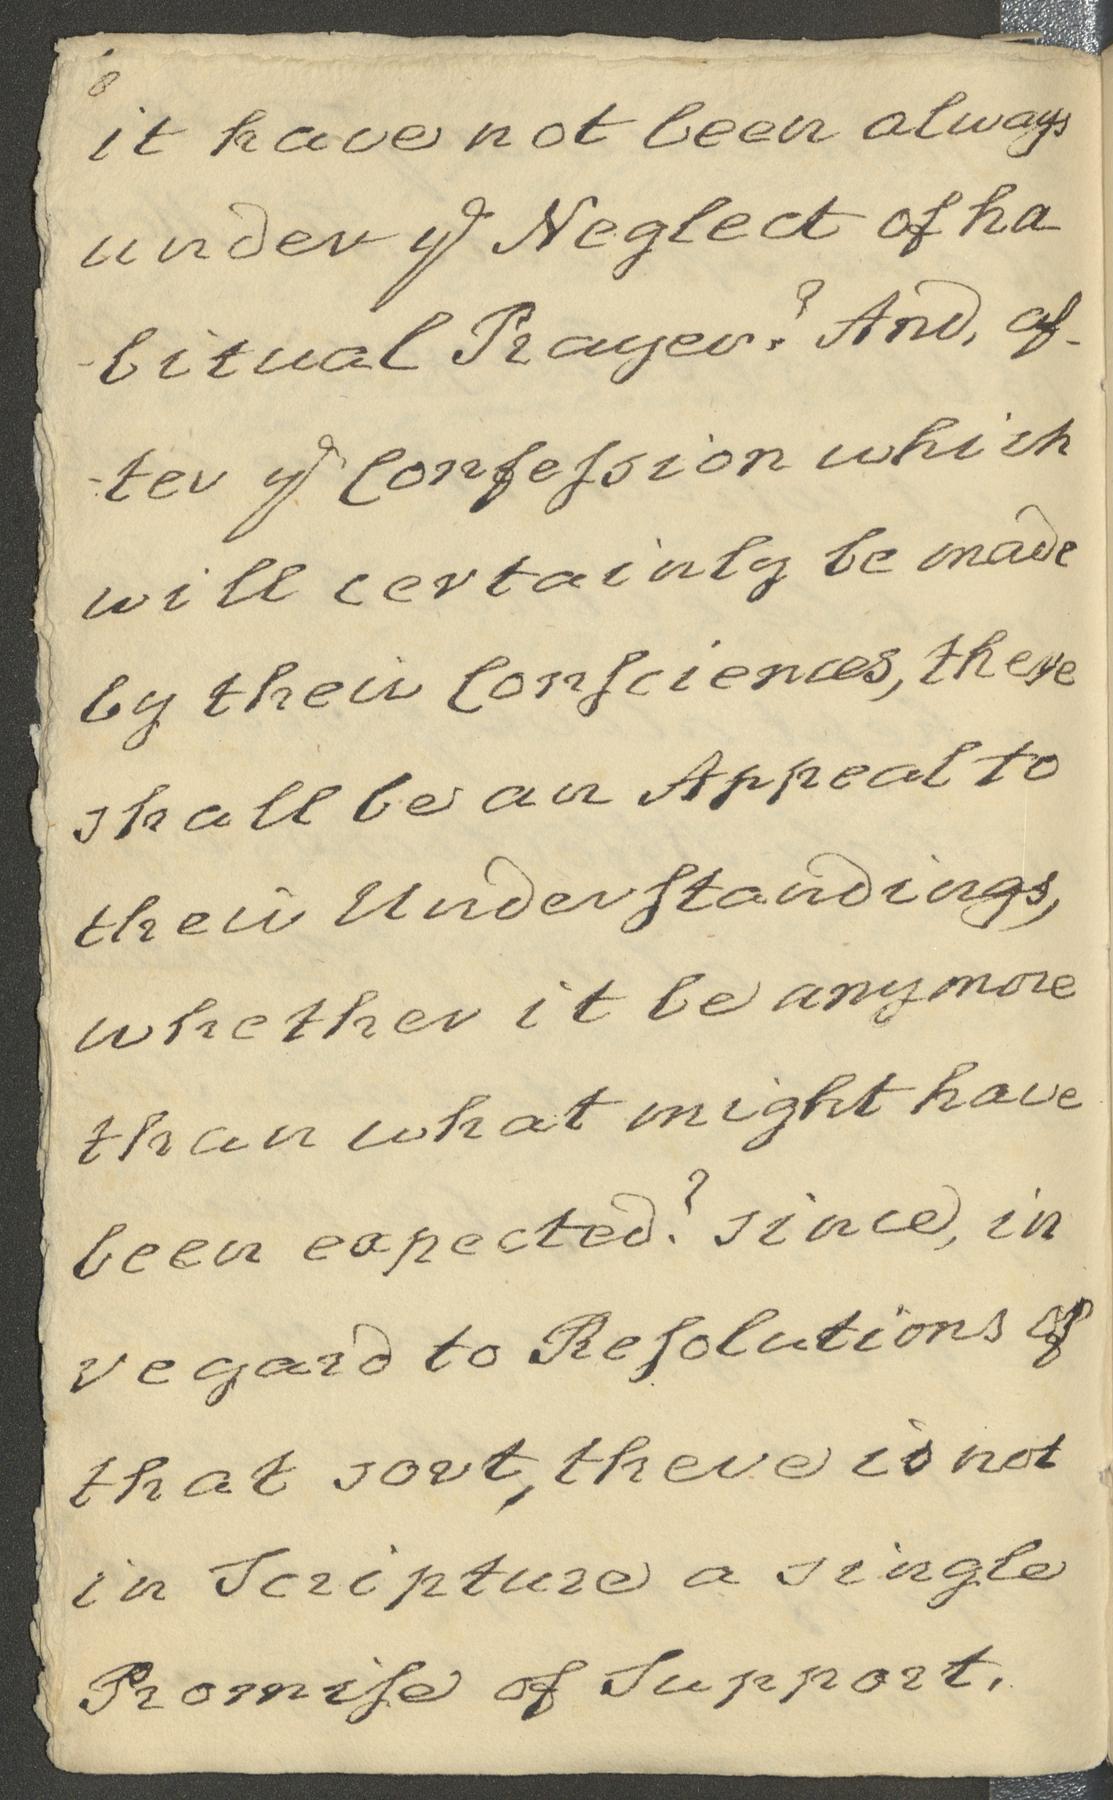 8
it have not been always
under yᵉ Neglect of ha
-bitual Prayer? And, af-
-ter yᵉ Confeſsion which
will certainly be made
by their Conſciences, there
shall be an Appeal to
their Underſtandings,
whether it be any more
than what might have
been expected? since, in
regard to Reſolutions of
that sort, there is not
in Scripture a single
Promiſe of Support.